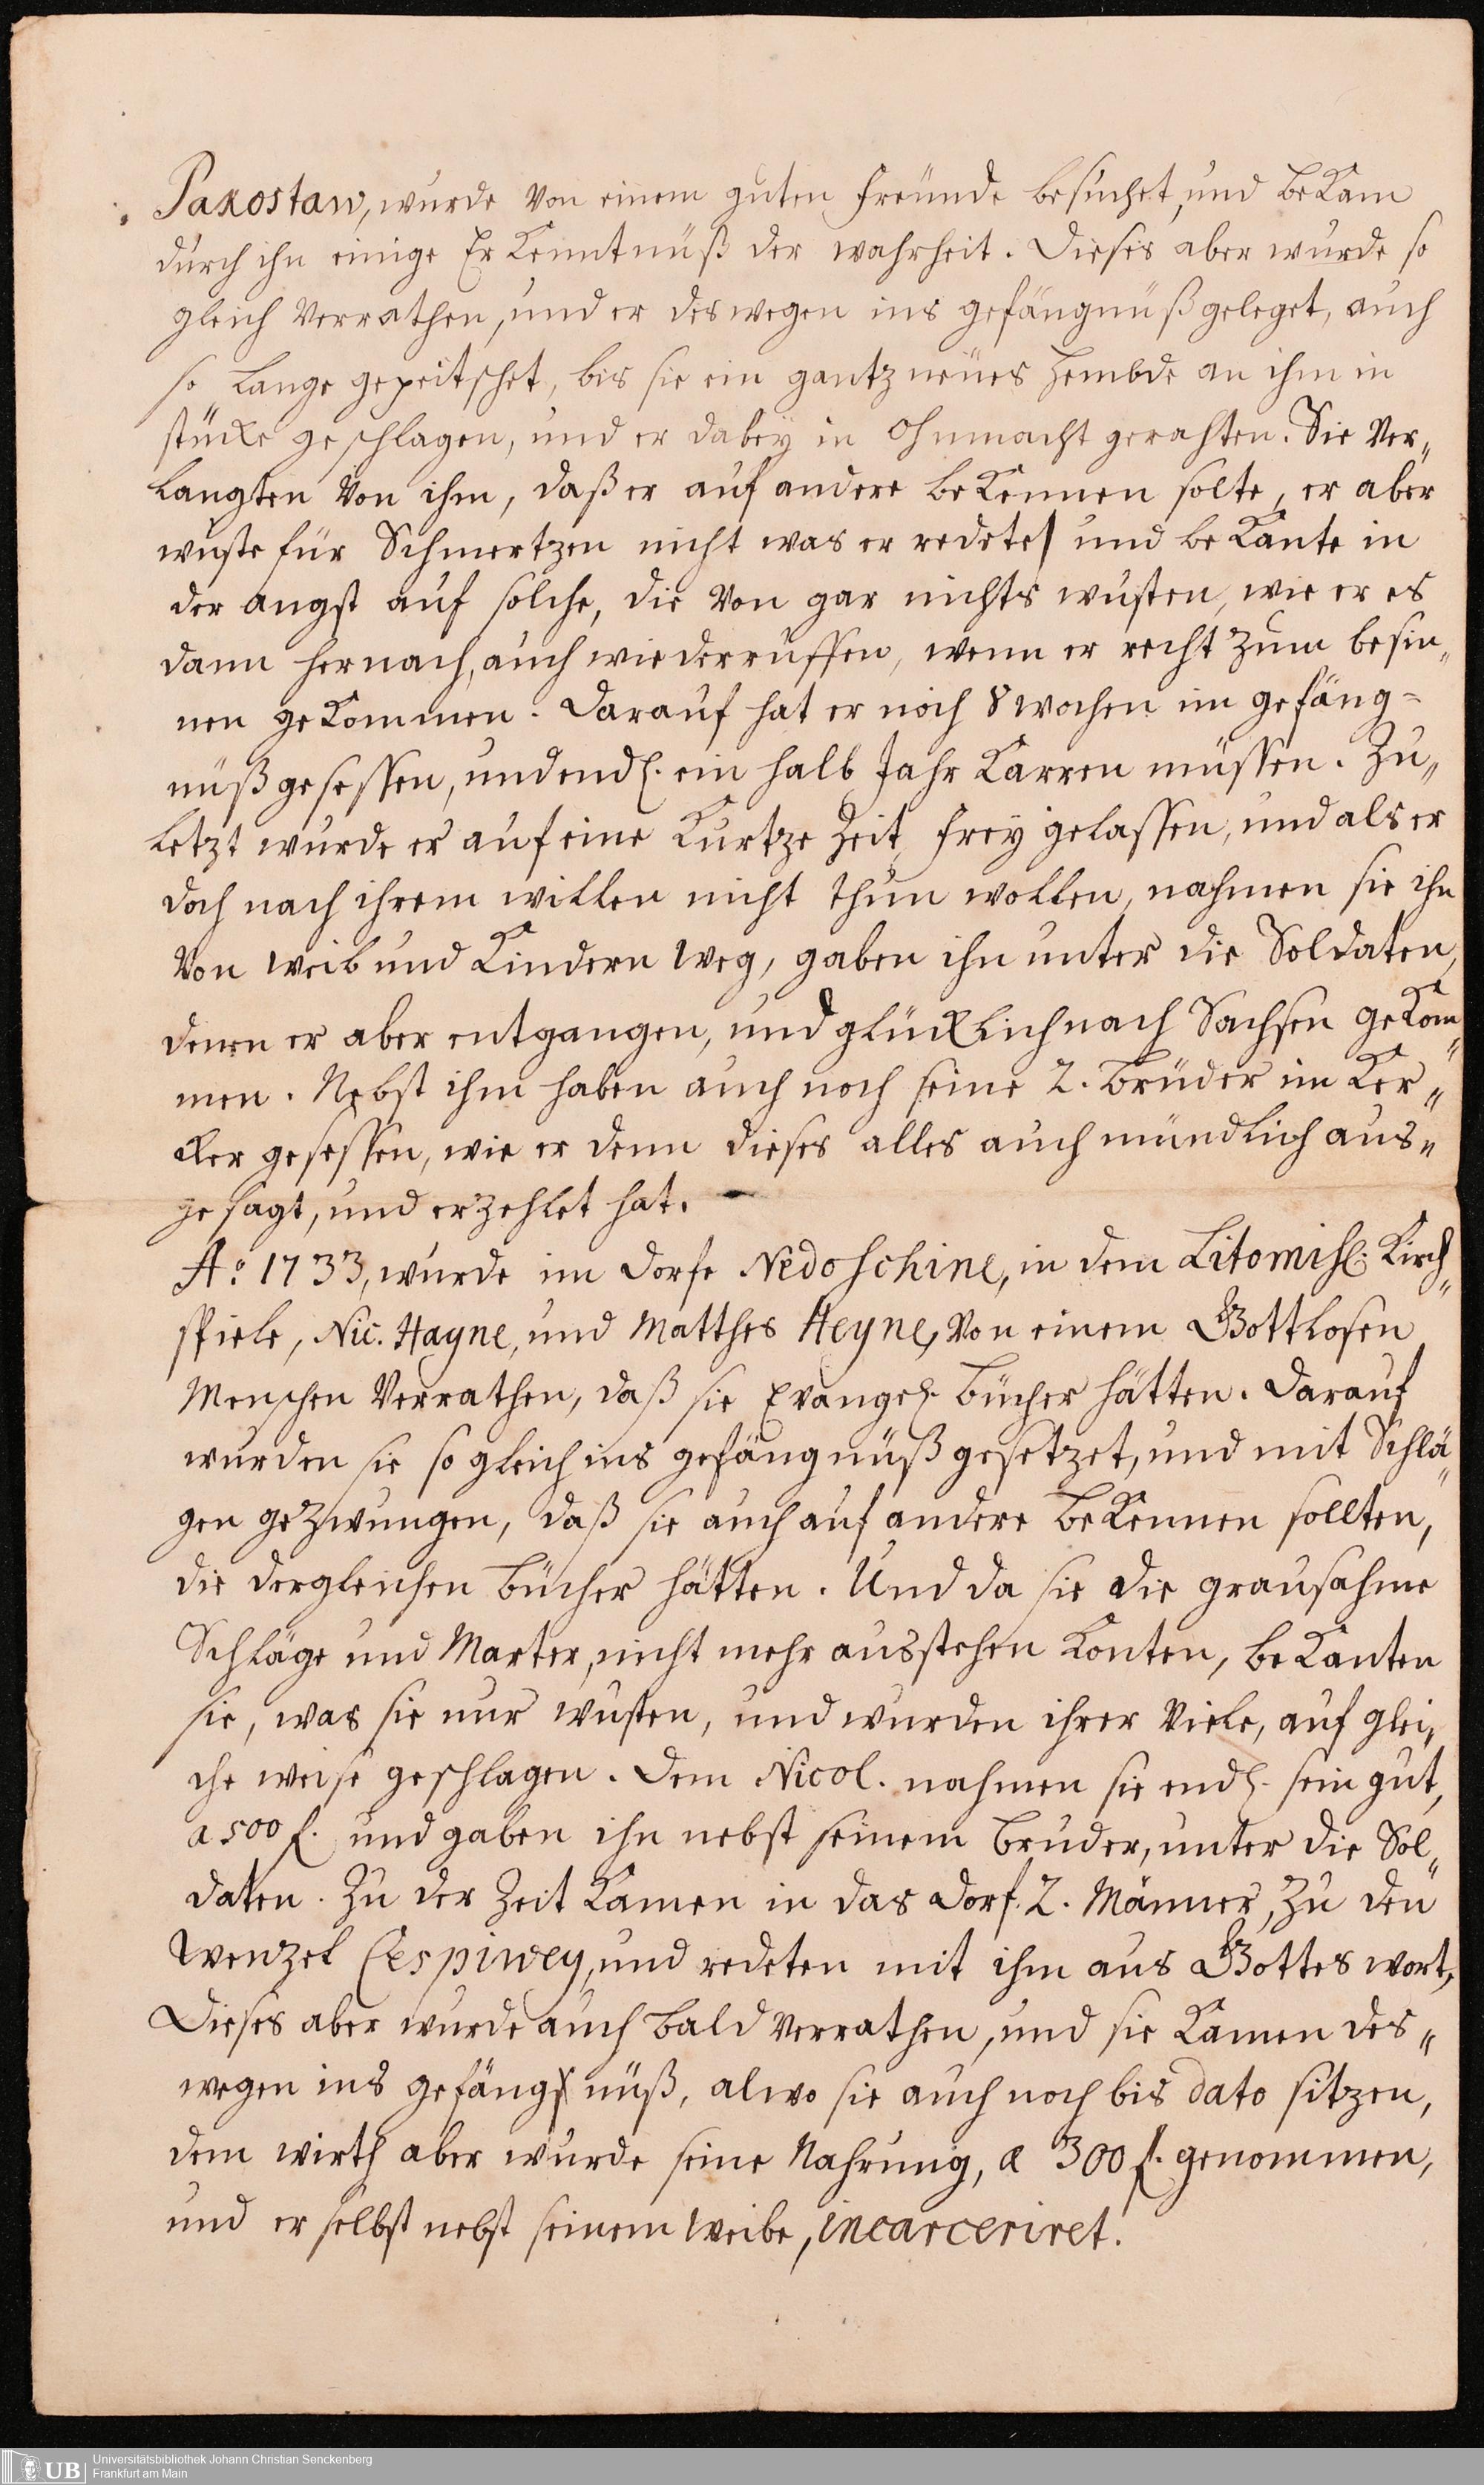 Pakostaw, wurde von einem guten freunde besuchet, und bekam
durch ihn einige Erkenntnüß der wahrheit. Dieses aber wurde so
gleich verrathen, und er deswegen ins gefängnüß geleget, auch
so lange gepeitschet, bis sie ein gantz neues Hembde an ihm in
stücke geschlagen, und er dabey in Ohnmacht gerahten. Sie ver„
langten von ihm, daß er auf andere bekennen solte, er aber
wuste für Schmertzen nicht was er redete und bekante in
der angst auf solche, die von gar nichts wusten, wie er es
dann hernach, auch wiederruffen, wenn er recht zum besin„
nen gekommen. Darauf hat er noch 8 wochen im gefäng=
nüß gesessen, und endl. ein halb Jahr karren müssen. Zu„
letzt wurde er auf eine kurtze Zeit, frey gelassen, und als er
doch nach ihrem willen nicht thun wollen, nahmen sie ihn
von weib und kindern weg, gaben ihn unter die Soldaten,
denen er aber entgangen, und glücklich nach Sachsen gekom„
men. Nebst ihm haben auch noch seine 2. brüder im ker„
cker gesessen, wie er denn dieses alles auch mündlich aus„
gesagt, und erzehlet hat.
Ao 1733, wurde im dorfe Nedoschine, in dem Litomisl. Kirch„
spiele, Nic. Hayne, und Matthes Heyne, von einem Gottlosen
Menschen verrathen, daß sie Evangel. bücher hätten. Darauf
wurden sie so gleich ins gefängnüß gesetzet, und mit Schlä„
gen gezwungen, daß sie auch auf andere bekennen sollten,
die dergleichen bücher hätten. Und da sie die grausahme
Schläge und Marter, nicht mehr ausstehen konten, bekanten
sie, was sie nur wusten, und wurden ihrer viele, auf glei„
che weise geschlagen. Dem Nicol. nahmen sie endl. sein gut,
a 500 f. und gaben ihn nebst seinem bruder, unter die Sol„
daten. Zu der Zeit kamen in das dorf 2. Männer, zu den
Wenzel Cespiwey, und redeten mit ihm aus Gottes wort,
Dieses aber wurde auch bald verrathen, und sie kamen des„
wegen ins gefängnüß, alwo sie auch noch bis dato sitzen,
dem wirth aber wurde seine Nahrung, a 300 f. genommen,
und er selbst nebst seinem weibe, incarceriret.
UB
Universitätsbibliothek Johann Christian Senckenberg
Frankfurt am Main